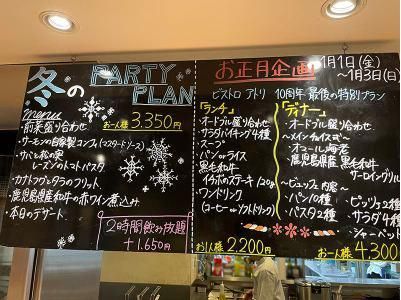 冬の PARTY PLAN
menu
お一人様 3,350円
・前菜盛り合わせ
・サーモンの自家製コンフィ(マスタードソース)
・サバと松の実
レーズンのトマトパスタ
・カナトフグとタラのフリット
・鹿児島県産和牛の赤ワイン煮込み
・本日のデザート
2時間飲み放題
+1,650円
お正月企画
1月1日(金)
～1月3日(日)
ビストロ アトリ 10周年 最後の特別プラン
「ランチ」
・オードブル盛り合わせ
・サラダバイキング4種
・スープ
・パン or ライス
・黒毛和牛
イチボのステーキ120g
・ワンドリンク
(コーヒー or ソフトドリンク)
お一人様 2,200円
「ディナー」
・オードブル盛り合わせ
・メインディッシュ
・オマール海老
・鹿児島県産 黒毛和牛
サーロイングリル
～ビュッフェ内容～
・パン10種
・パスタ2種
・ピッツァ2種
・サラダ4種
・シャーベット
お一人様 4,300円